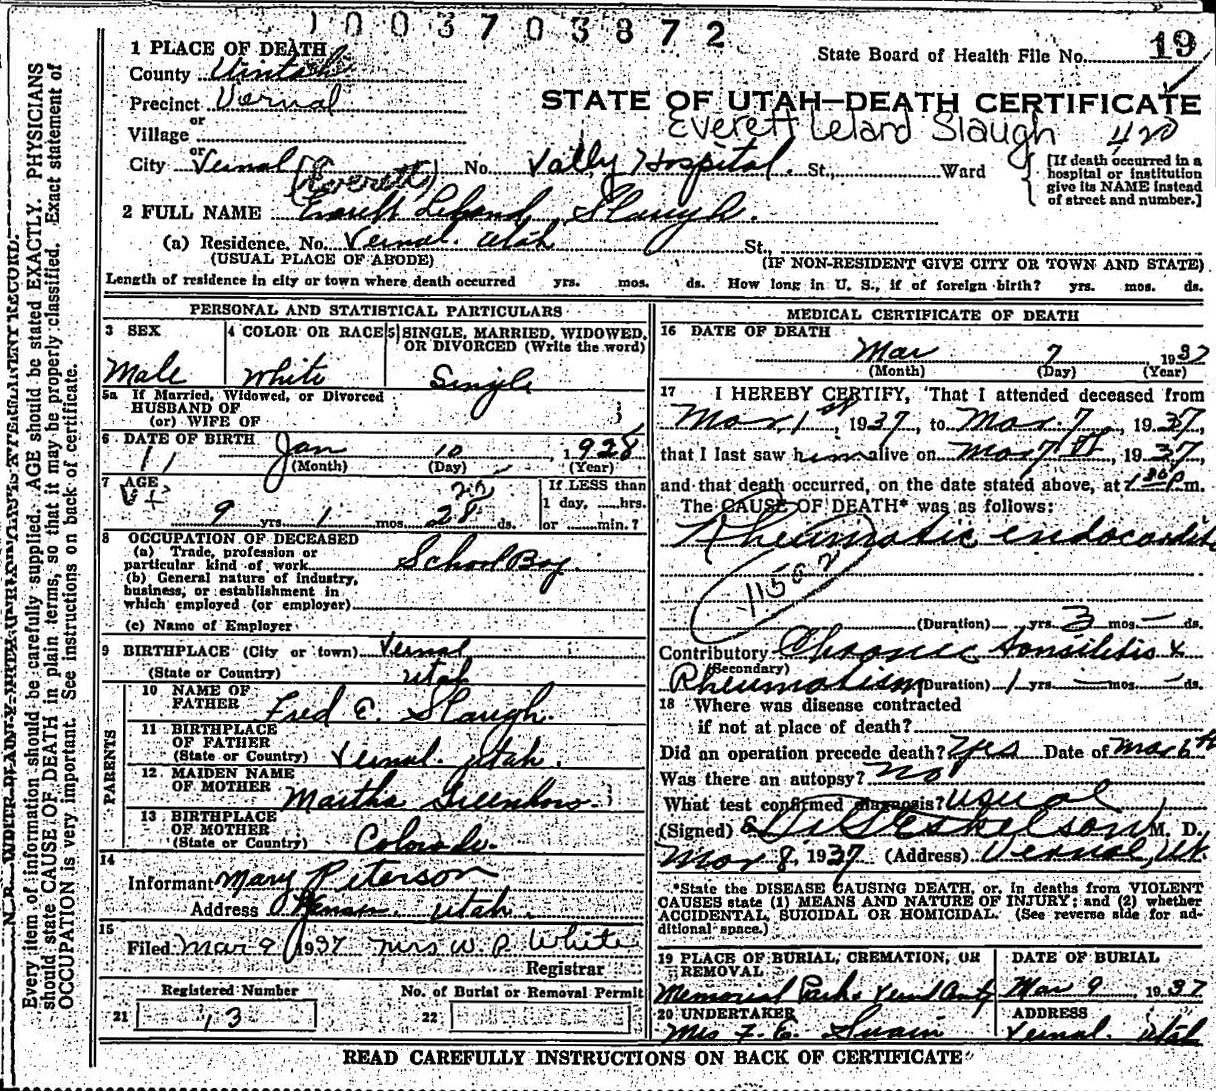 1003703872
State Board of Health File No. 19
1 PLACE OF DEATH
County Uintah
Precinct Vernal
STATE OF UTAH—DEATH CERTIFICATE
or
Everett Leland Slaugh
Village
or
City Vernal (Everett) No. Vally Hospital. St., Ward
[If death occurred in a
hospital or institution
give its NAME instead
of street and number.]
2 FULL NAME Leland Slaugh.
(a) Residence. No. Vernal. Utah St.,
(USUAL PLACE OF ABODE) (IF NON-RESIDENT GIVE CITY OR TOWN AND STATE)
Length of residence in city or town where death occurred yrs. mos. ds. How long in U. S., if of foreign birth? yrs. mos. ds.
PERSONAL AND STATISTICAL PARTICULARS
3 SEX
Male
4 COLOR OR RACE
White
5 SINGLE, MARRIED, WIDOWED,
OR DIVORCED (Write the word)
Single
5a If Married, Widowed, or Divorced
HUSBAND OF
(or) WIFE OF
6 DATE OF BIRTH Jan 10, 1928
(Month) (Day) (Year)
7 AGE
9 yrs. 1 mos. 28 ds.
If LESS than
1 day, hrs.
or min.?
8 OCCUPATION OF DECEASED
(a) Trade, profession or
particular kind of work School Boy.
(b) General nature of industry,
business, or establishment in
which employed (or employer)
(c) Name of Employer
9 BIRTHPLACE (City or town) Vernal
(State or Country) Utah
PARENTS
10 NAME OF
FATHER Fred E. Slaugh.
11 BIRTHPLACE
OF FATHER
(State or Country) Vernal. Utah.
12 MAIDEN NAME
OF MOTHER Martha
13 BIRTHPLACE
OF MOTHER
(State or Country) Colorado.
14
Informant Mary Peterson
Address Utah.
15
Filed Mar 9 1937 Mrs W. P. White
Registrar
Registered Number
21 13
No. of Burial or Removal Permit
22
MEDICAL CERTIFICATE OF DEATH
16 DATE OF DEATH
Mar 7 1937
(Month) (Day) (Year)
17 I HEREBY CERTIFY, That I attended deceased from
Mar 1st, 1937, to Mar. 7, 1937,
that I last saw him alive on Mar 7th, 1937,
and that death occurred, on the date stated above, at 1:30 P m.
The CAUSE OF DEATH* was as follows:
Rheumatic endocarditis
(Duration) yrs. 3 mos. — ds.
Contributory Chronic tonsilitis &
(Secondary)
Rheumatism (Duration) 1 yrs — mos. — ds.
18 Where was disease contracted
if not at place of death?
Did an operation precede death? Yes Date of Mar 6th
Was there an autopsy? No
What test confirmed diagnosis? usual
(Signed) Eskelson M. D.
Mar 8, 1937 (Address) Vernal, Ut.
*State the DISEASE CAUSING DEATH, or, in deaths from VIOLENT
CAUSES state (1) MEANS AND NATURE OF INJURY; and (2) whether
ACCIDENTAL, SUICIDAL OR HOMICIDAL. (See reverse side for ad-
ditional space.)
19 PLACE OF BURIAL, CREMATION, OR
REMOVAL
Memorial Park
DATE OF BURIAL
Mar 9, 1937
20 UNDERTAKER
Mrs F. E. Swain
ADDRESS
Vernal. Utah
READ CAREFULLY INSTRUCTIONS ON BACK OF CERTIFICATE
Every item of information should be carefully supplied. AGE should be stated EXACTLY. PHYSICIANS
should state CAUSE OF DEATH in plain terms, so that it may be properly classified. Exact statement of
OCCUPATION is very important. See instructions on back of certificate.